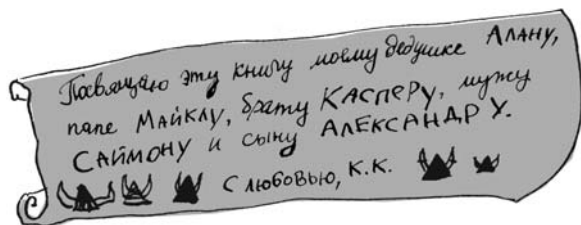 Посвящаю эту книгу моему дедушке АЛАНУ,
папе МАЙКЛУ, брату КАСПЕРУ, мужу
САЙМОНУ и сыну АЛЕКСАНДРУ.
С любовью, К.К.